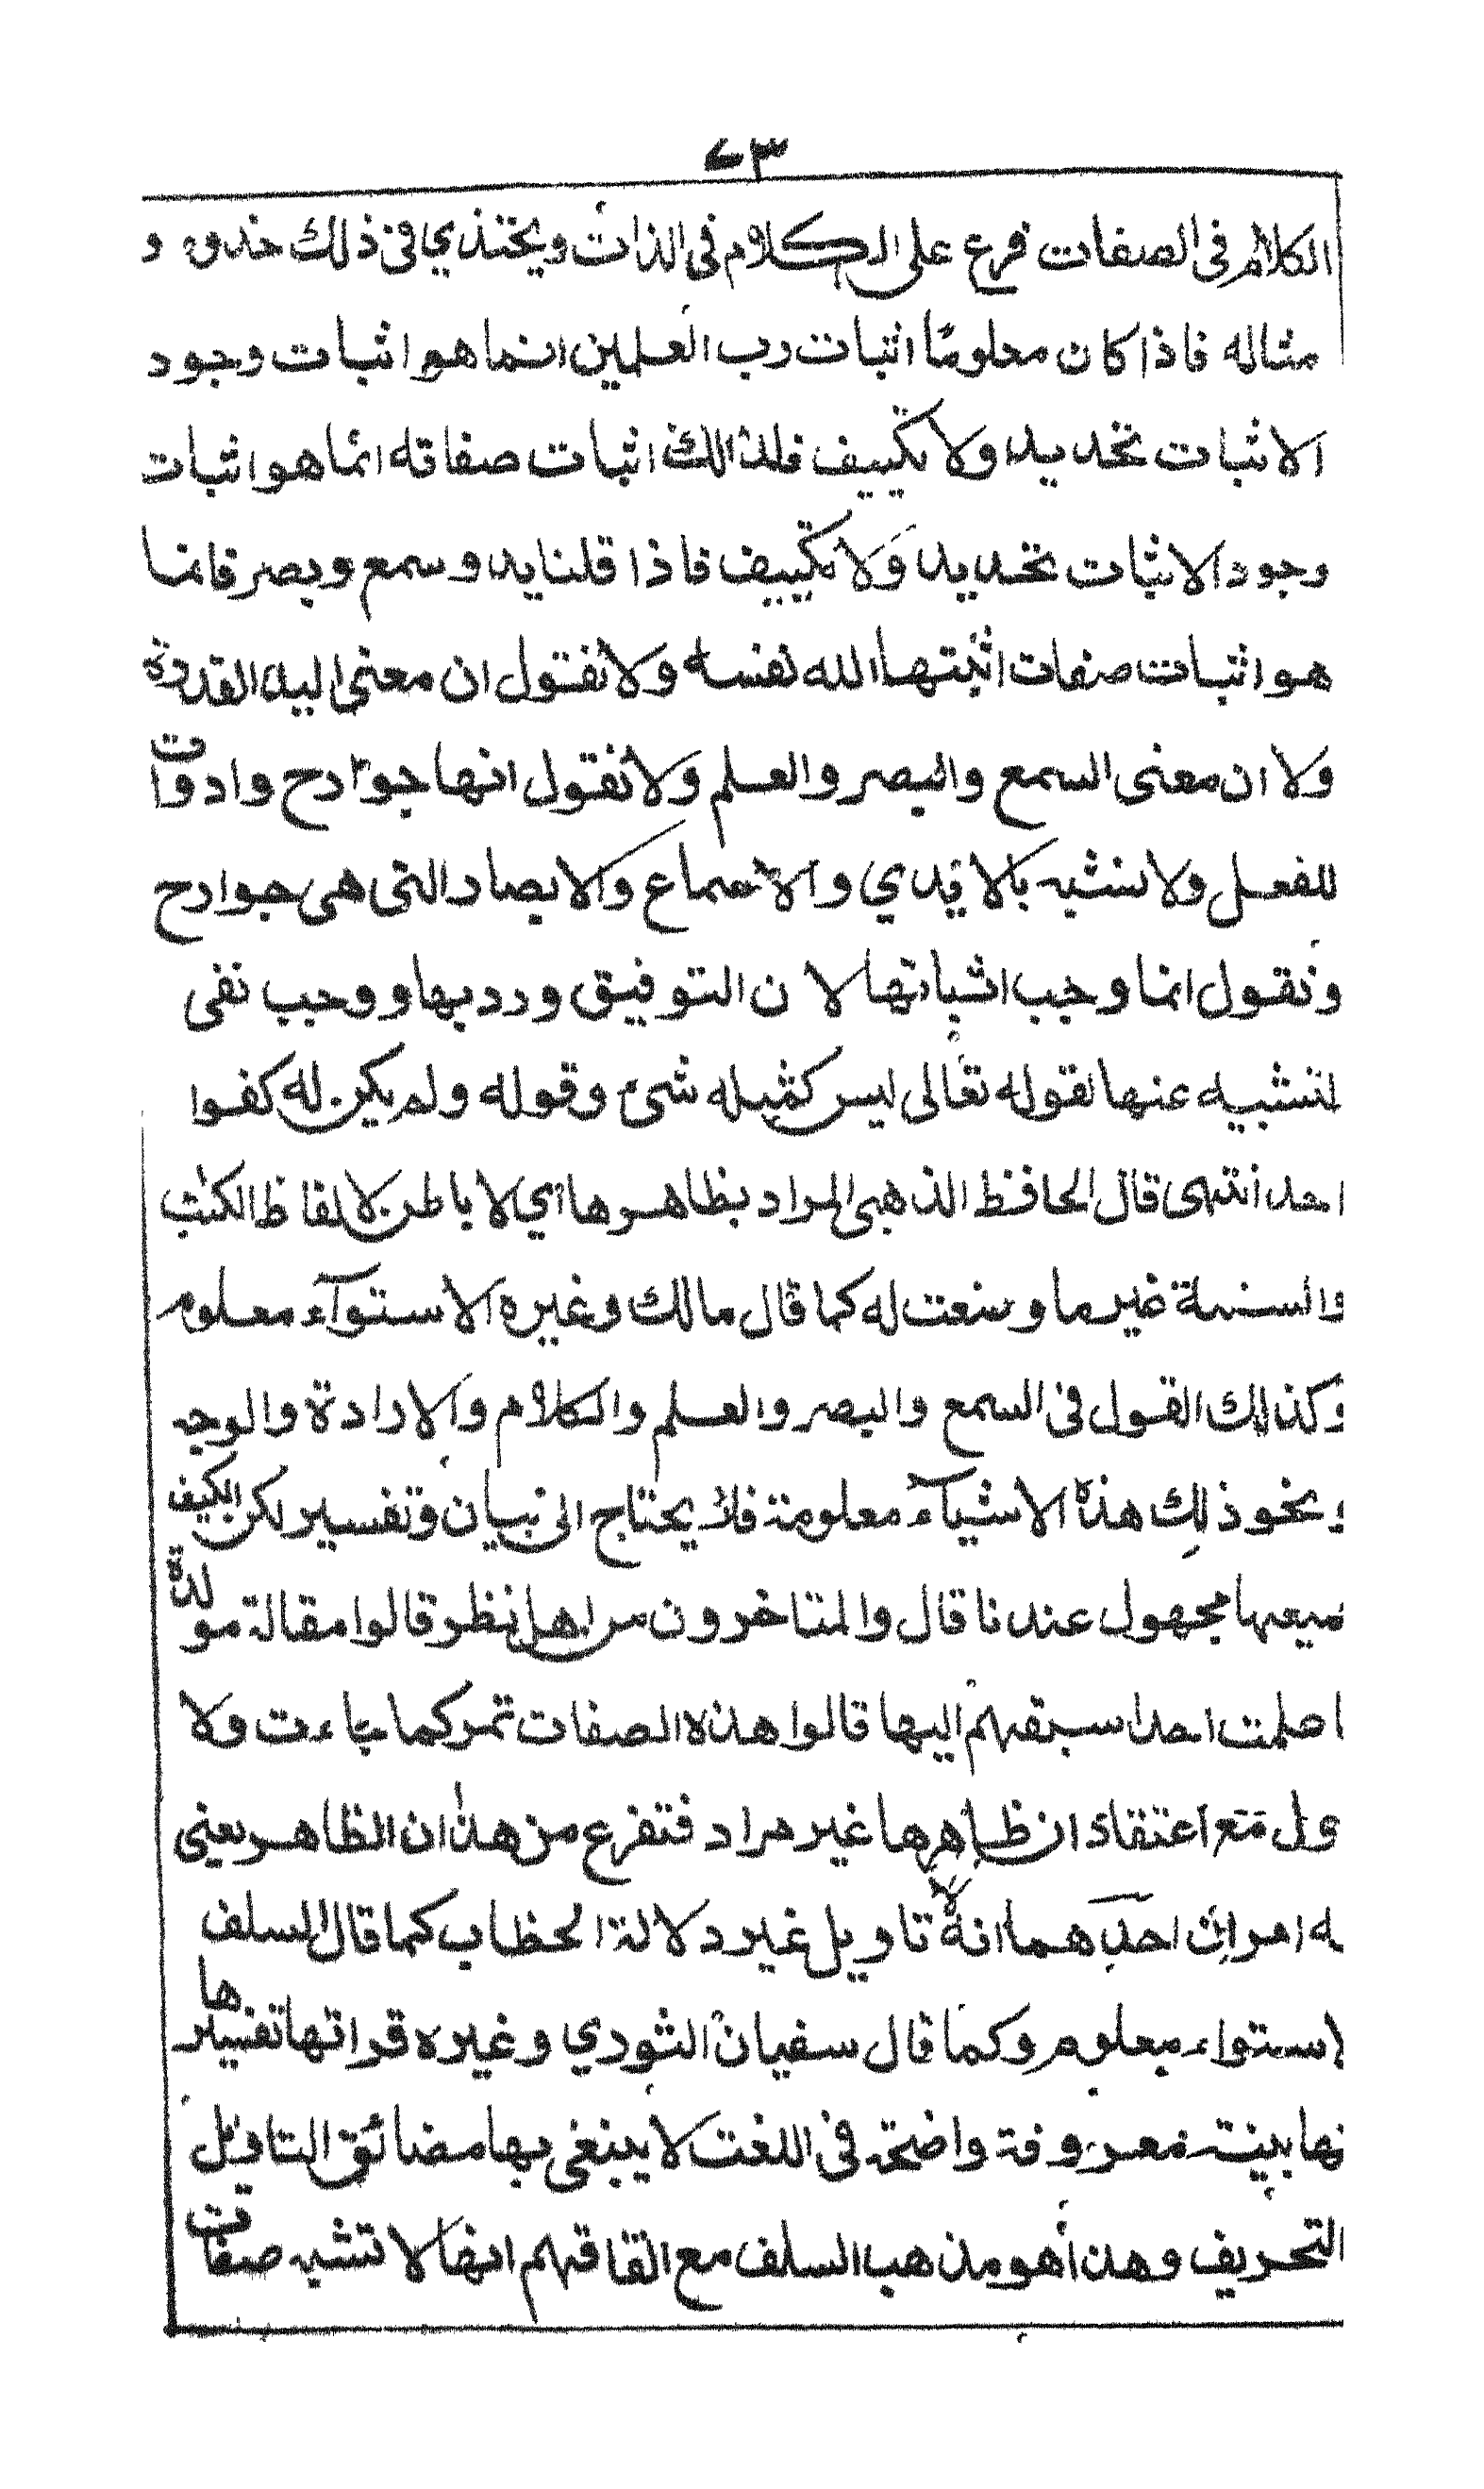 ٧٣
الكلام في الصفات فرع على الكلام في الذات ويحتذي في ذلك حذوه و
مثاله فاذا كان معلومًا اثبات رب العلمين انما هو اثبات وجود
الا ثبات تحديد ولا تكييف فلذالك اثبات صفاته انما هو اثبات
وجود الا ثبات تحديد وَلا تكييف فاذا قلنا يد وسمع وبصر فانما
هو اثبات صفات اثبتها الله نفسه ولا نقول ان معنى اليد القدرة
ولا ان معنى السمع والبصر والعلم ولا نقول انها جوارح وادوات
للفعل ولا نشبه بالايدي والاسماع والابصار التي هي جوارح
ونقول انما وجب اثباتها لا ن التوفيق ورد بها ووجب نفي
لتشبيه عنها لقوله تعالى ليس كمثله شئ وقوله ولم يكن له كفوا
احد انتهى قال الحافظ الذهبي المراد بظاهرها اي لا باطن لالفاظ الكتب
والسنة غير ما وضعت له كما قال مالك وغيره الاستوآء معلوم
وكذالك القول في السمع والبصر والعلم والكلام والارادة والوجه
ونحو ذلك هذه الاشيآء معلومة فلا يحتاج الى بيان وتفسير لكن الكيف
ميعها مجهول عندنا قال والمتاخرون من اهل نظر قالوا مقالة مولدة
ا علمت احدا سبقهم اليها قالوا هذه الصفات تمر كما جاءت ولا
ول مع اعتقاد ان ظاهرها غير مراد فتفرع من هذا ان الظاهر يعني
به امران احدهما انه لا تاويل غير دلالة الخطاب كما قال السلف
لاستواء معلوم وكما قال سفيان الثوري وغيره قراتها تفسيرها
نها بينة معروفة واضحة في اللغت لا يبتغى بها مضائق التاويل
التحريف وهذا هو مذهب السلف مع اتفاقهم انها لا تشبه صفات